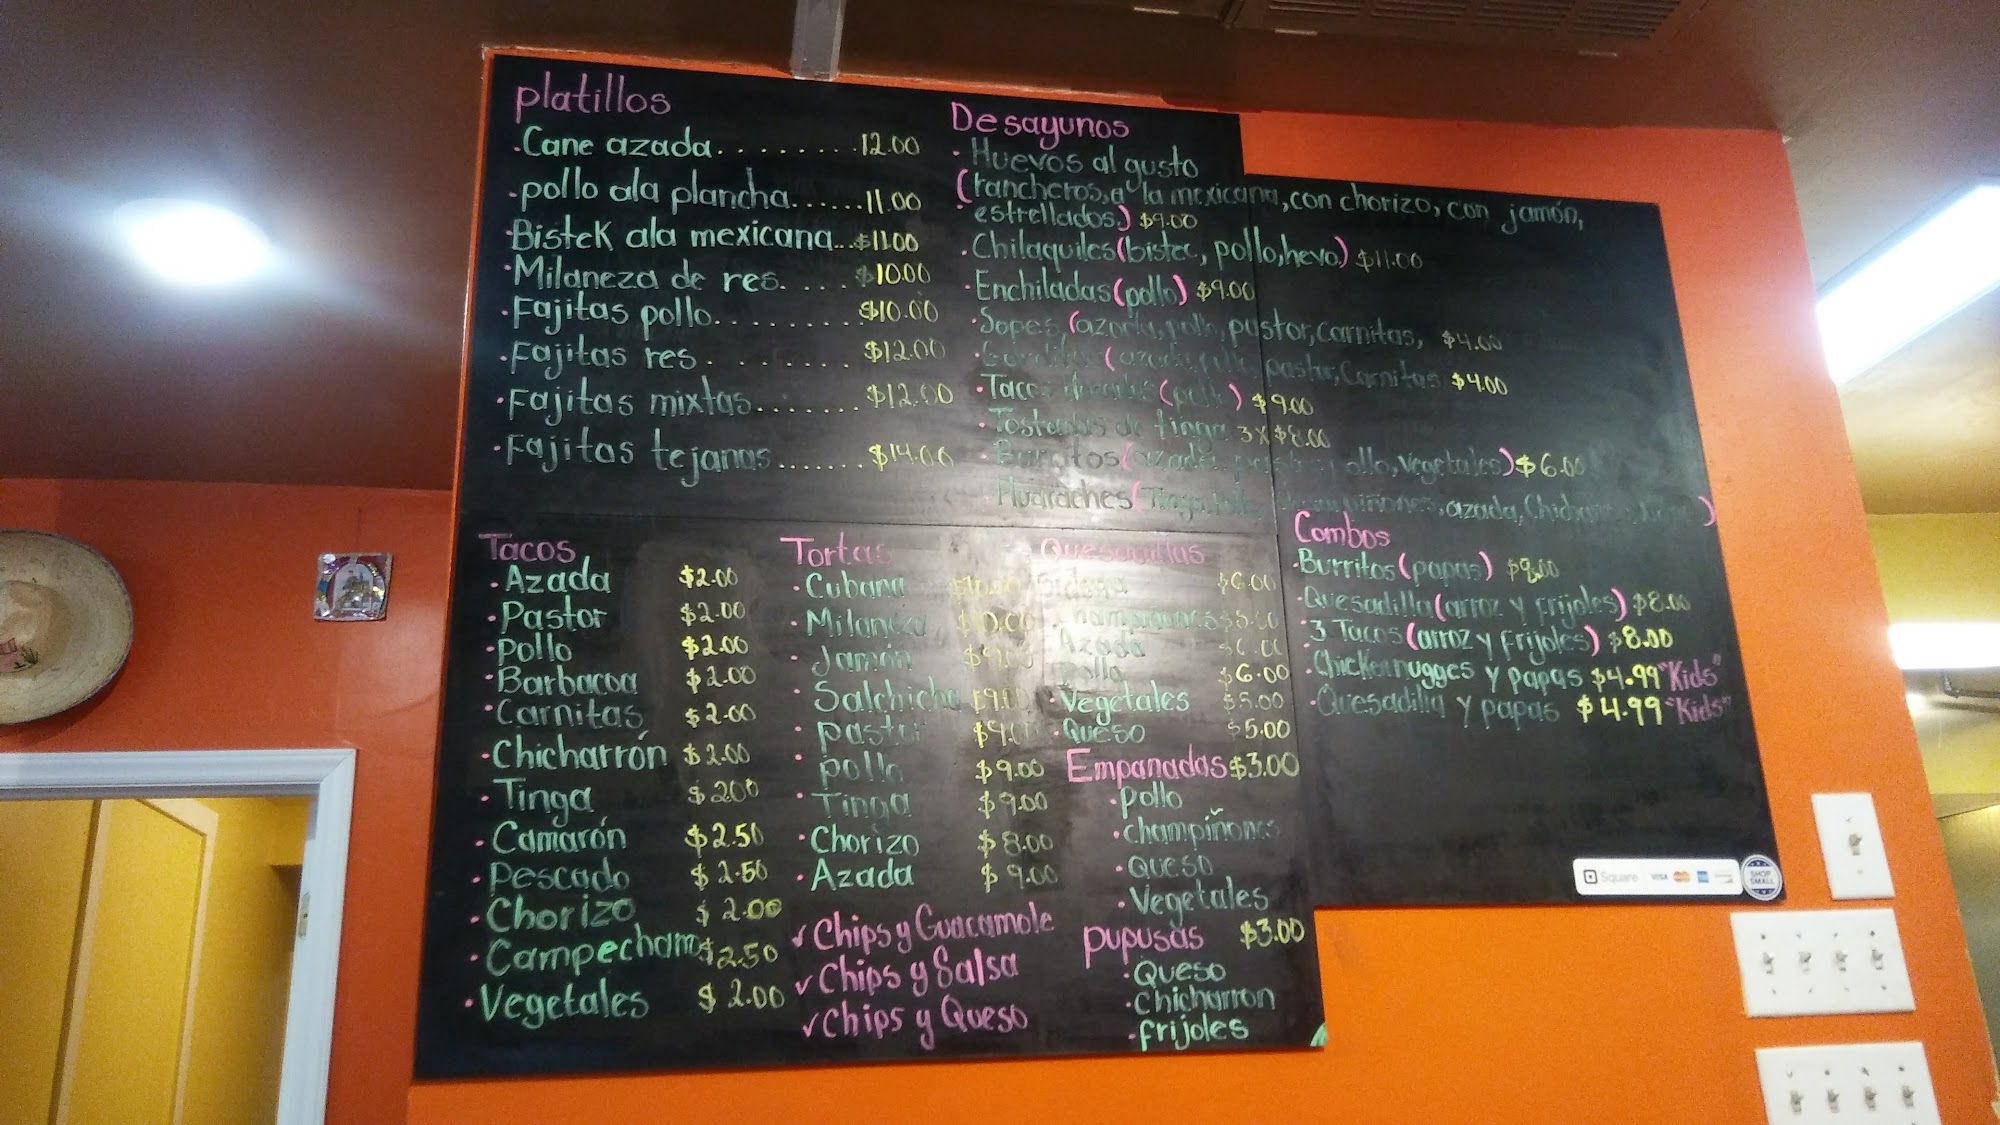 platillos
·Cane azada........12.00
·pollo ala plancha......11.00
·Bistek ala mexicana...$11.00
·Milaneza de res.....$10.00
·Fajitas pollo.........$10.00
·Fajitas res.........$12.00
·Fajitas mixtas.......$12.00
·Fajitas tejanas.......$14.00
Desayunos
·Huevos al gusto
(rancheros, a la mexicana, con chorizo, con jamón,
estrellados.) $9.00
·Chilaquiles (bistec, pollo, hevo.) $11.00
·Enchiladas (pollo) $9.00
·Sopes (azada, pollo, pastor, carnitas, $4.00
(azada, pastor, Carnitas $4.00
·Tacos dorados (pollo) $9.00
·Tostadas de tinga 3x$8.00
·Burritos (azada, pollo, vegetales) $6.00
Huaraches (Tinga, azada,
Tacos
·Azada $2.00
·Pastor $2.00
·Pollo $2.00
·Barbacoa $2.00
·Carnitas $2.00
·Chicharrón $2.00
·Tinga $200
·Camarón $2.50
·Pescado $2.50
·Chorizo $2.00
·Campechano $2.50
·Vegetales $2.00
Tortas
·Cubana
·Milaneza $10.00
·Jamón $9.00
·Salchicha $9.00
·pastor $9.00
·pollo $9.00
·Tinga $9.00
·Chorizo $8.00
·Azada $9.00
✓Chips y Guacamole
✓Chips y Salsa
✓Chips y Queso
Quesadillas
$6.00
champiñones $5.00
Azada
pollo $6.00
·Vegetales $5.00
·Queso $5.00
Empanadas $3.00
·pollo
·champiñones
·Queso
·Vegetales
pupusas $3.00
·Queso
·Chicharron
·frijoles
Combos
·Burritos (papas) $9.00
·Quesadilla (arroz y frijoles) $8.00
·3 Tacos (arroz y frijoles) $8.00
·Chicken nugges y papas $4.99 "Kids"
·Quesadilla y papas $4.99 "Kids"
Square VISA
SHOP SMALL